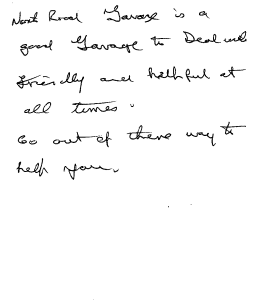 North Road Garage is a
good Garage to Deal with
friendly and helpful at
all times.
Go out of there way to
help you.